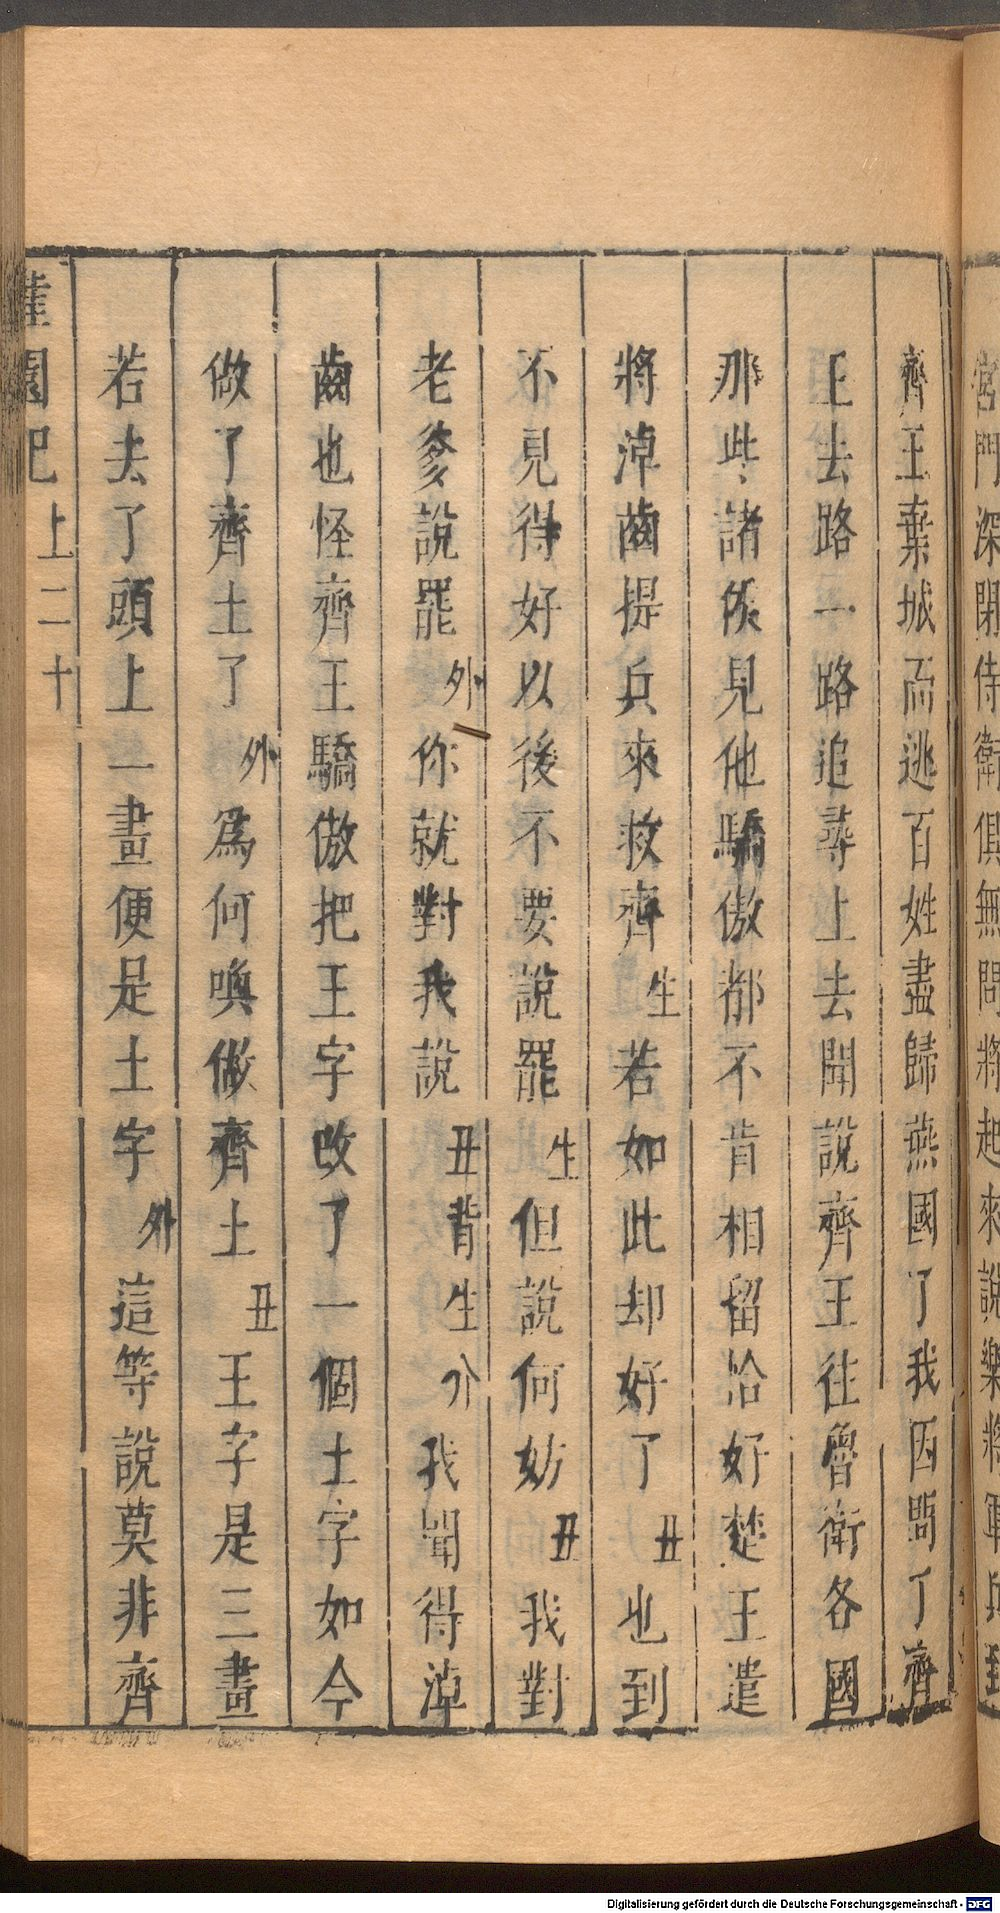 宮門深閉侍衛俱無問將起來說樂將軍兵到
齊王棄城而逃百姓盡歸燕國了我因問了齊
王去路一路追尋上去聞說齊王往魯衛各國
那些諸侯見他驕傲都不肯相留恰好楚王遣
將淖齒提兵來救齊生若如此却好了丑也到
不見得好以後不要說罷生但說何妨丑我對
老爹說罷外你就對我說丑背生介我聞得淖
齒也怪齊王驕傲把王字改了一個土字如今
做了齊土了外為何喚做齊土丑王字是三畫
若去了頭上一畫便是土字外這等說莫非齊
園記 上二十
Digitalisierung gefördert durch die Deutsche Forschungsgemeinschaft - DFG